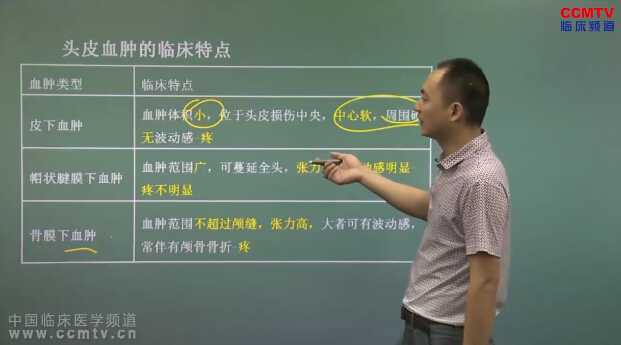 CCMTV
临床频道
头皮血肿的临床特点
血肿类型 临床特点
皮下血肿 血肿体积小，位于头皮损伤中央，中心软，周围硬
无波动感 疼
帽状腱膜下血肿 血肿范围广，可蔓延全头，张力 动感明显
疼不明显
骨膜下血肿 血肿范围不超过颅缝，张力高，大者可有波动感，
常伴有颅骨骨折 疼
中国临床医学频道
www.ccmtv.cn